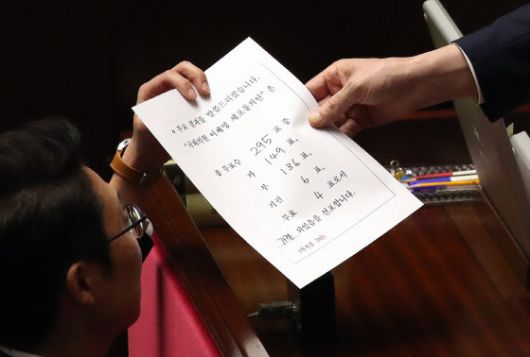 o 투표 결과를 말씀드리겠습니다.
"국회의원 이재명 체포동의안"은
총 투표수 295 표 중
가 149 표,
부 136 표,
기권 6 표,
무효 4 표로서
가결 되었음을 선포합니다.
(의사봉 3타)